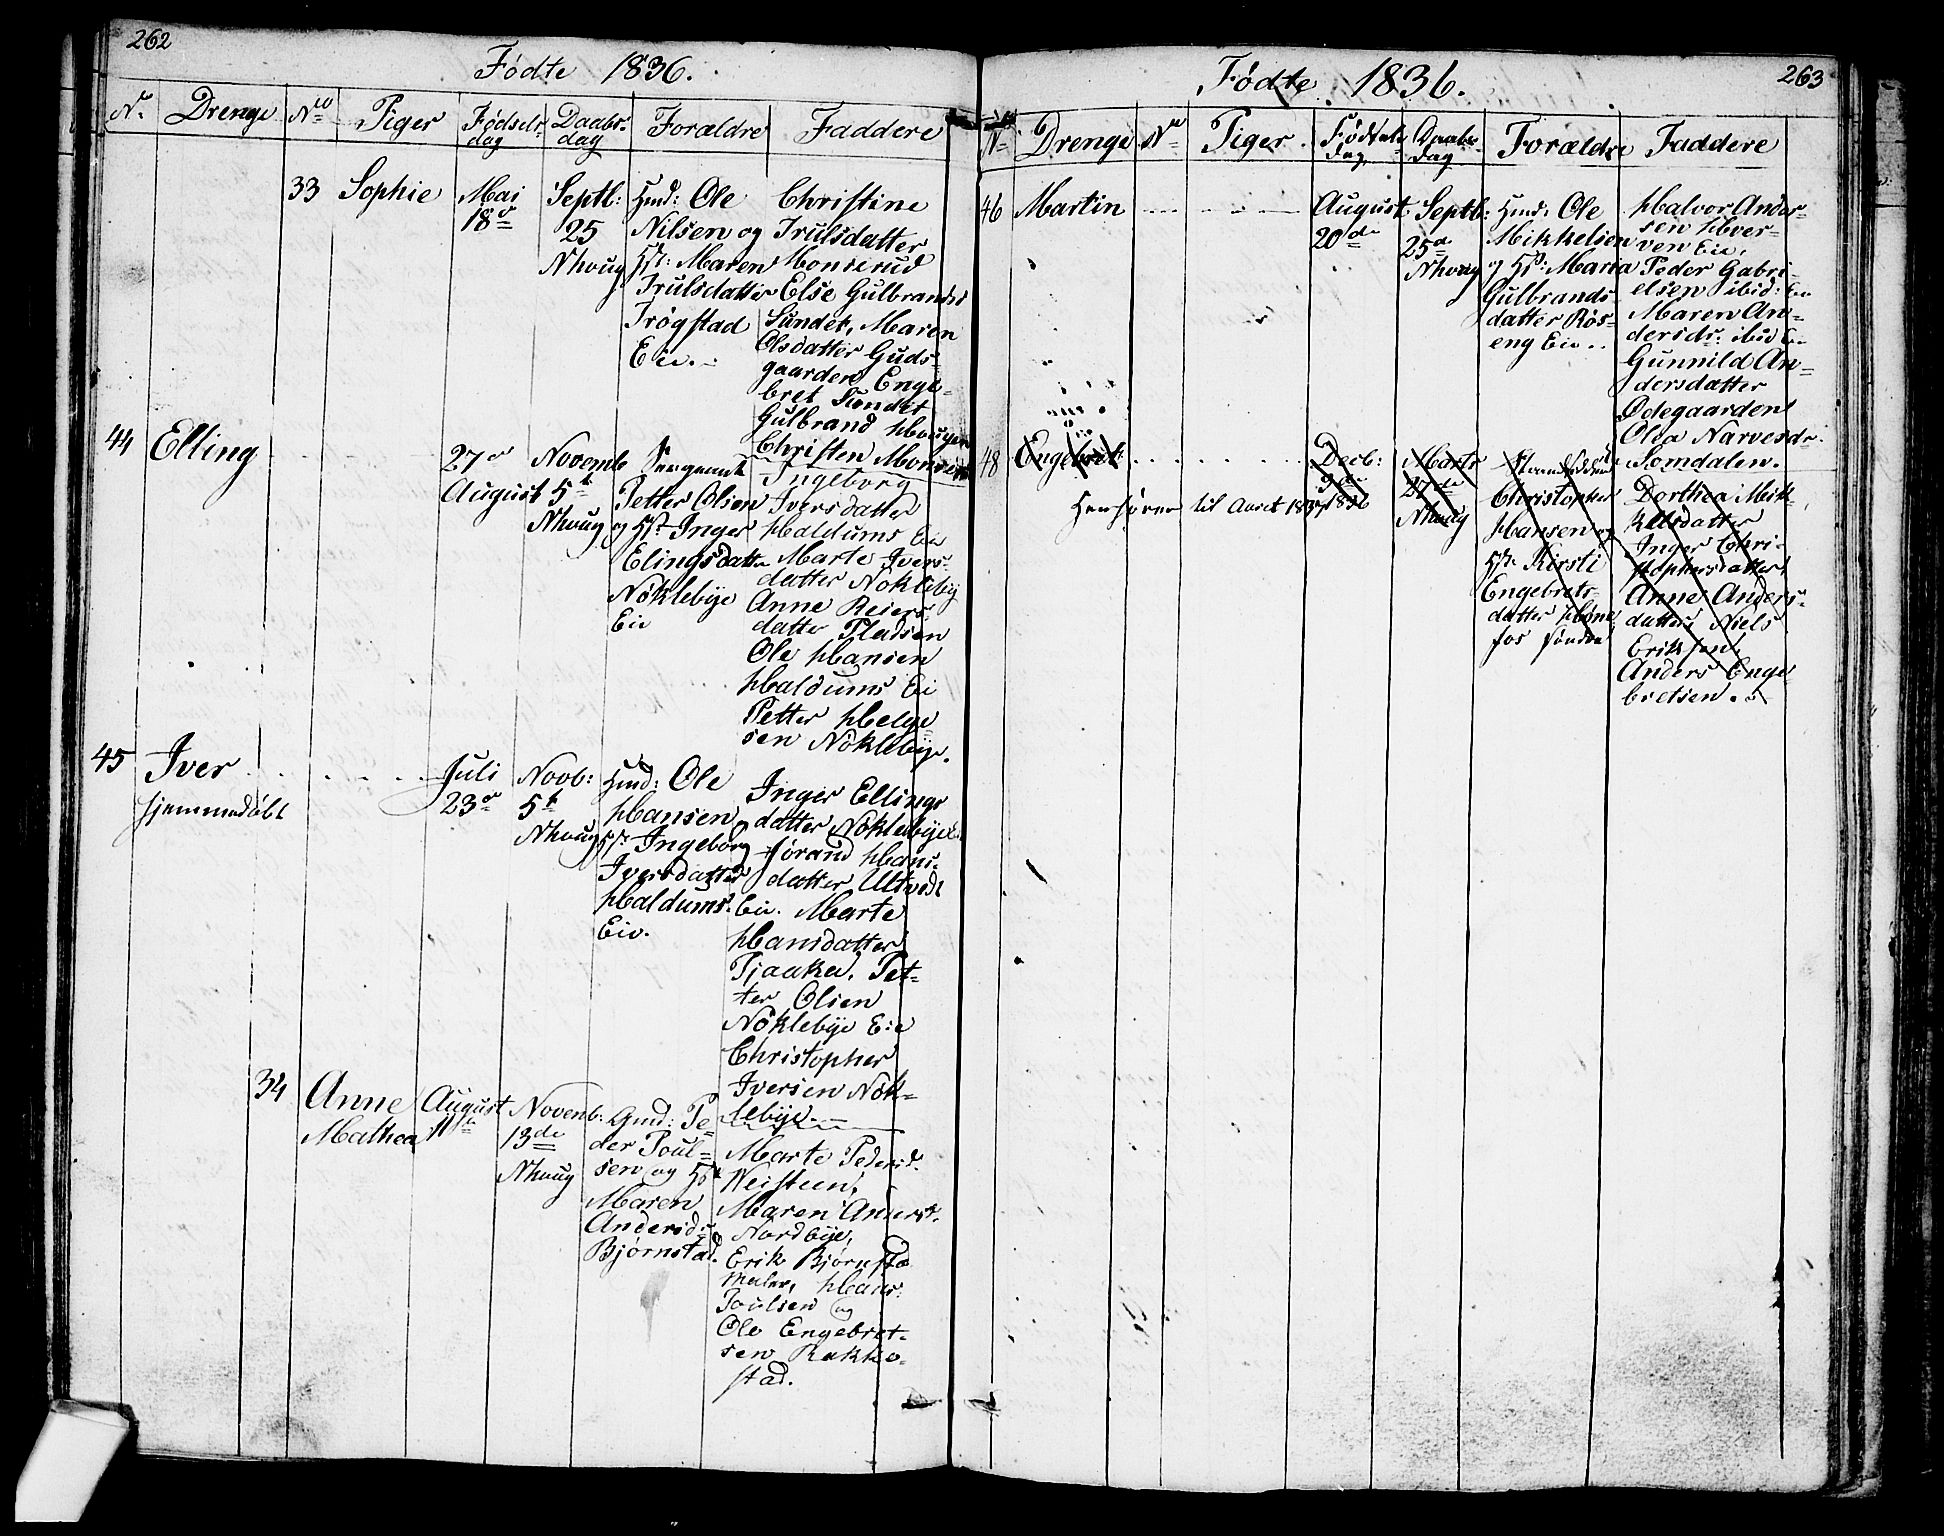 262
Fødte 1836.
No. Drenge No Piger Fødsels- Daabs- Forældre Faddere
dag dag
33 Sophie Mai 18de Septb: 25 Nhoug
Hmd: Ole
Nilsen og
Hst: Maren
Trulsdatter
Frøgstad
Eie.
Christine
Trulsdatter
Monserud
Else Gulbrandsd
Sundet, Maren
Olsdatter Guds-
gaarden, Enge-
bret Sundet
Gulbrand Houger
Christen Monserud
44 Elling 27de August Novemb 5te Nhoug
Sergeant
Petter Olsen
og Hst Inger
Elingsdatter
Nöklebye
Eie
Ingeborg
Iversdatter
Haldums Eie
Marte Ivers-
datter Nöklebÿ
Anne Reiers-
datter Pladsen
Ole Hansen
Haldums Ei
Petter Helge
sen Nöklebÿe.
45 Iver
hjemmedøbt
Juli 23de Novb: 5te Nhoug
Hmd: Ole
Hansen og
Hst: Ingeborg
Iversdatter
Haldums
Eie.
Inger Ellings
datter Nöklebÿe
Jørand Hans-
datter Ultvedt
Eie. Marte
Hansdatter
Tjaaka, Pet-
ter Olsen
Nöklebÿe Eie
Christopher
Iversen Nök-
lebÿe.
34 Anne
Mathea
August 11te Novemb: 13de Nhoug
Gmd: Pe-
der Poul-
sen og Hst
Maren
Andersd:
Bjørnstad.
Marte Pedersd.
Weisteen,
Maren Andersd.
Nordbÿe,
Erik Bjørnstad
Hans
Poulsen og
Ole Engebret-
sen Rakke-
stad.
263
Fødte 1836.
No Drenge No Piger Fødsels Daabs Forældre Faddere
dag dag
46 Martin August 20de Septb: 25de Nhoug
Hmd: Ole
Mikkelsen
og Hst: Maria
Gulbrands-
datter Røs-
eng Eie.
Halvor Ander-
sen Hver-
ven Eie,
Peder Gabri-
elsen ibid: Eie
Maren An-
dersdr: ibid Eie
Gunnild An-
dersdatter
Ødegaarden
Olea Narvesdr.
Somdalen.
48 Engebret Decb: 9de 1836 Marts 27de Nhoug
Henhører til Aaret 1837
Strandsidder
Christopher
Hansen og
Hst: Kirsti
Engebrets-
datter Høne
fos søndre
Dorthea Mik-
kelsdatter
Inger Chri-
stophersdatter
Anne Anders-
datter, Niels
Eriksen,
Anders Enge
bretsen.